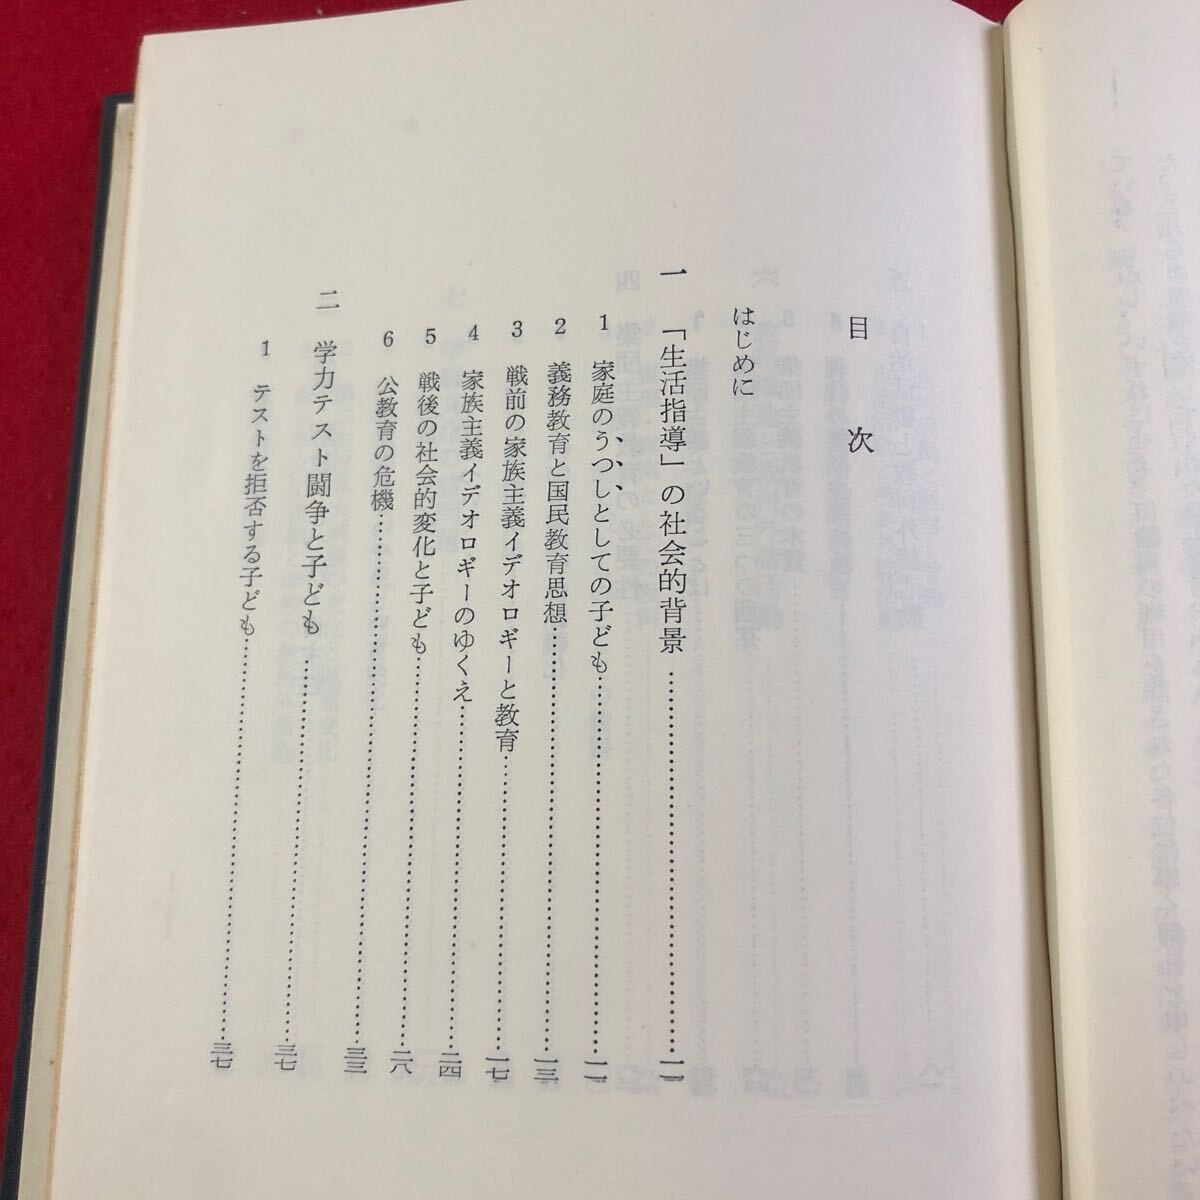 目次
はじめに
一 「生活指導」の社会的背景……………一一
1 家庭のうつしとしての子ども……………一一
2 義務教育と国民教育思想……………一三
3 戦前の家族主義イデオロギーと教育……………一七
4 家族主義イデオロギーのゆくえ……………二四
5 戦後の社会的変化と子ども……………二八
6 公教育の危機……………三三
二 学力テスト闘争と子ども……………三七
1 テストを拒否する子ども……………三七